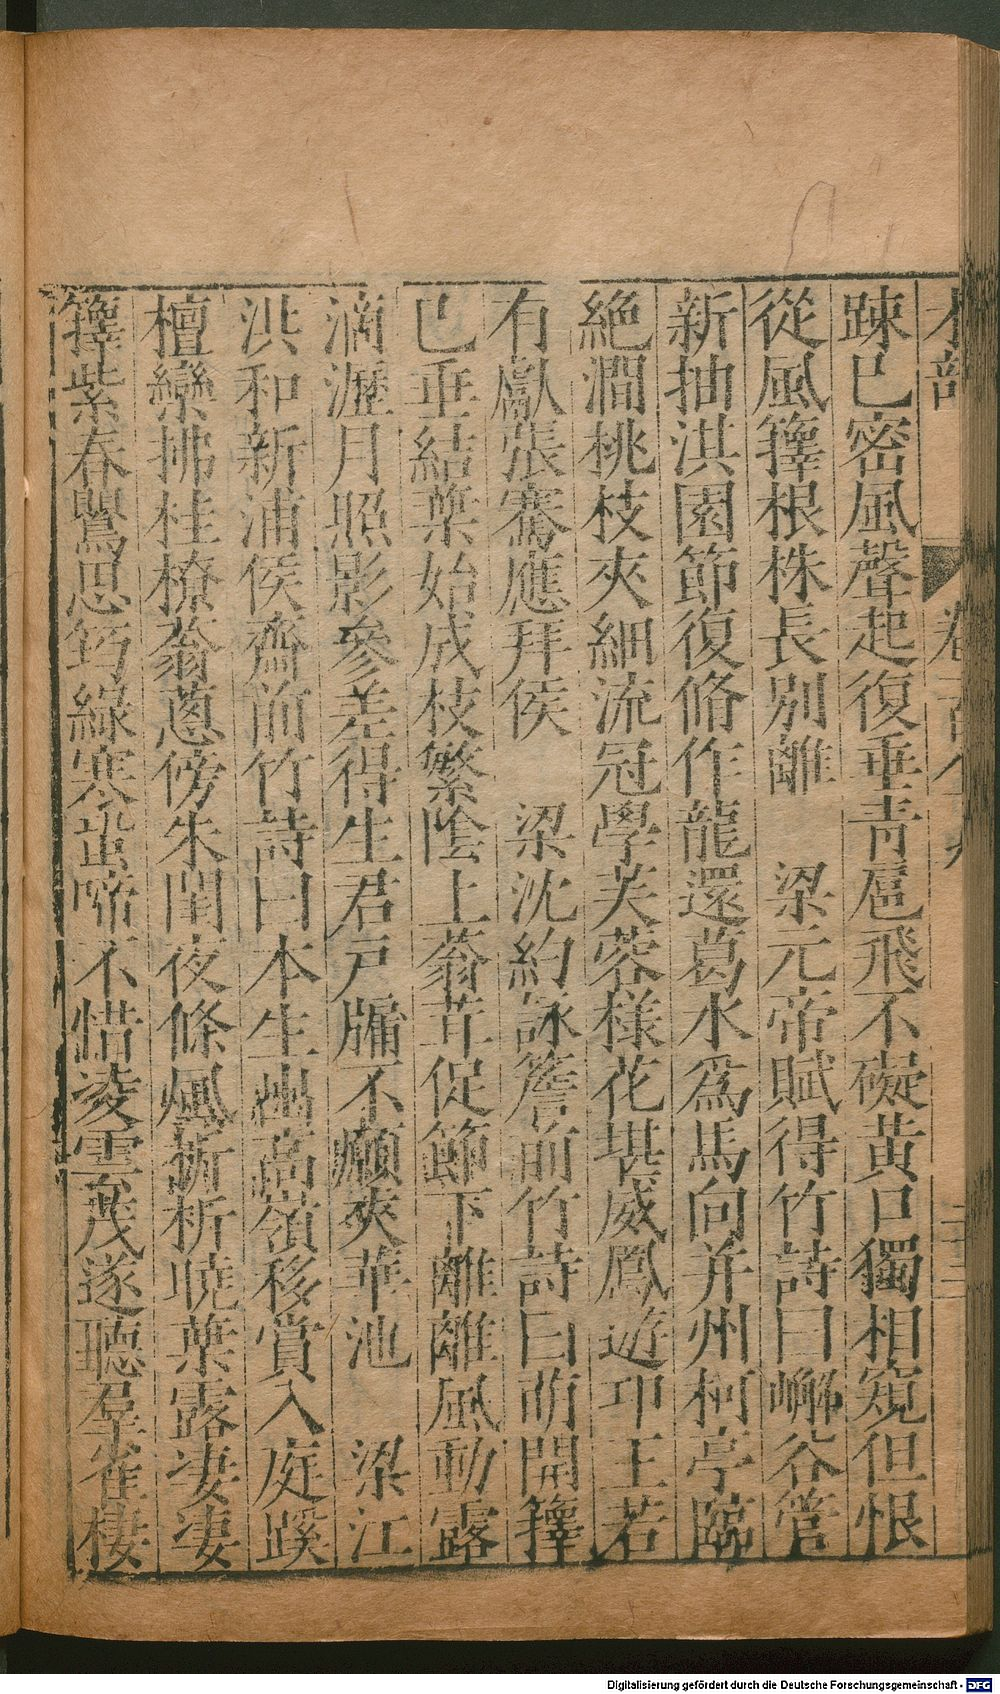 木部
踈已密風聲起復垂青扈飛不礙黃口獨相窺但恨
從風籜根株長別離　梁元帝賦得竹詩曰嶰谷管
新抽洪園節復脩作龍還葛水爲馬向并州柯亭臨
絶澗桃枝夾細流冠學芙蓉樣花堪威鳳遊卭王若
有獻張騫應拜侯　梁沈約詠簷前竹詩曰萌開籜
已垂結葉始成枝繁陰上蓊茸促節下離離風動露
滴瀝月照影參差得生君戶牖不願夾華池　梁江
洪和新浦侯齋前竹詩曰本生幽高嶺移賞入庭蹊
檀欒拂桂橑蓊蔥傍朱閨夜條風析析曉葉露凄凄
籜紫春鸎思筠綠寒蛩啼不惜凌雲茂遂聽羣雀棲
Digitalisierung gefördert durch die Deutsche Forschungsgemeinschaft - DFG